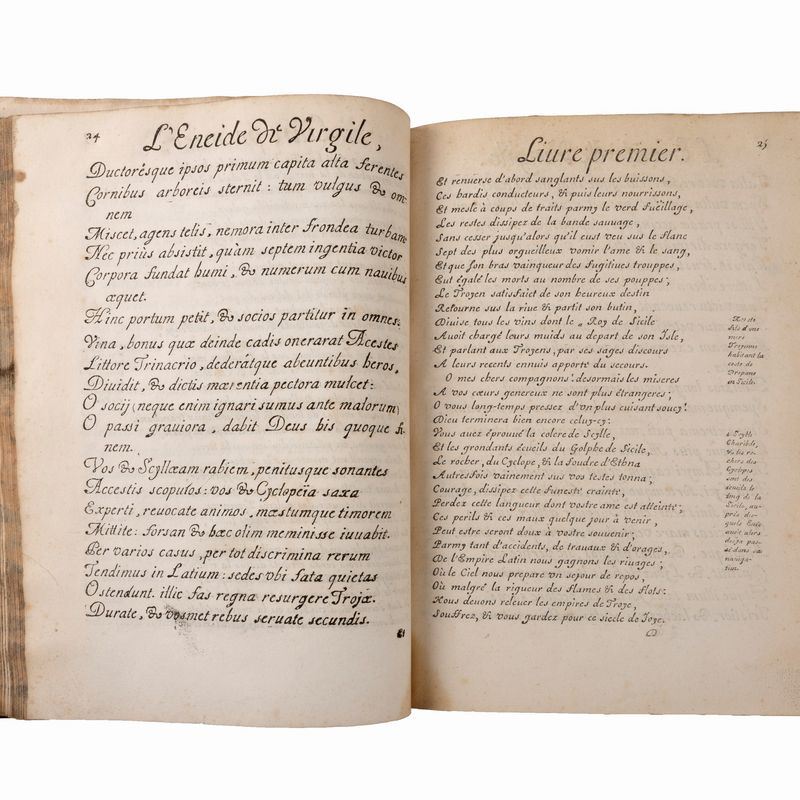 24
L'Eneide de Virgile,
Ductorésque ipsos primum capita alta ferentes
Cornibus arboreis sternit: tum vulgus & om-
nem
Miscet, agens telis, nemora inter frondea turbam
Hec priùs absistit, quàm septem ingentia victor
Corpora fundat humi, & numerum cum nauibus
æquet.
Hinc portum petit, & socios partitur in omnes:
Vina, bonus quæ deinde cadis onerarat Acestes
Littore Trinacrio, dederátque abeuntibus heros,
Diuidit, & dictis mærentia pectora mulcet:
O socij (neque enim ignari sumus ante malorum)
O passi grauiora, dabit Deus his quoque fi-
nem.
Vos & Scyllæam rabiem, penitusque sonantes
Accestis scopulos: vos & Cyclopeïa saxa
Experti, reuocate animos, mæstumque timorem
Mittite: forsan & hæc olim meminisse iuuabit.
Per varios casus, per tot discrimina rerum
Tendimus in Latium: sedes vbi fata quietas
Ostendunt. illic fas regna resurgere Trojæ.
Durate, & vosmet rebus seruate secundis.
Et
25
Liure premier.
Et renuerse d'abord sanglants sus les buissons,
Ces hardis conducteurs, & puis leurs nourrissons,
Et mesle à coups de traits parmy le verd fuëillage,
Les restes dissipez de la bande sauuage,
Sans cesser jusqu'alors qu'il eust veu sus le flanc
Sept des plus orgueilleux vomir l'ame & le sang,
Et que son bras vainqueur des fugitiues trouppes,
Eut égalé les morts au nombre de ses pouppes;
Le Troyen satisfaict de son heureux destin
Retourne sur la riue & partit son butin,
Diuise tous les vins dont le a Roy de Sicile
Auoit chargé leurs muids au depart de son Isle,
Et parlant aux Troyens, par ses sages discours
A leurs recents ennuis apporte du secours.
O mes chers compagnons! desormais les miseres
A vos cœurs genereux ne sont plus étrangeres;
O vous long-temps pressez d'vn plus cuisant soucy!
Dieu terminera bien encore celuy-cy:
Vous auez éprouué la colere de Scylle,
Et les grondants écueils du Golphe de Sicile,
Le rocher, du Cyclope, & la foudre d'Ethna
Autresfois vainement sus vos testes tonna;
Courage, dissipez cette funeste crainte,
Perdez cette langueur dont vostre ame est atteinte;
Ces perils & ces maux quelque jour à venir,
Peut estre seront doux à vostre souuenir;
Parmy tant d'accidents, de trauaux & d'orages,
De l'Empire Latin nous gagnons les riuages;
Où le Ciel nous prepare vn sejour de repos,
Où malgré la rigueur des flames & des flots:
Nous deuons releuer les empires de Troye,
Souffrez, & vous gardez pour ce siecle de Joye.
D
Troyenne
habitant la
coste de
Drepane
en Sicile.
b Scylle
Charibde,
& les ro-
chers des
Cyclopes
sont des
écueils le
long de la
Sicile, au-
prés des-
quels Enée
auoit alors
desja pas-
sé dans sa
nauiga-
tion.